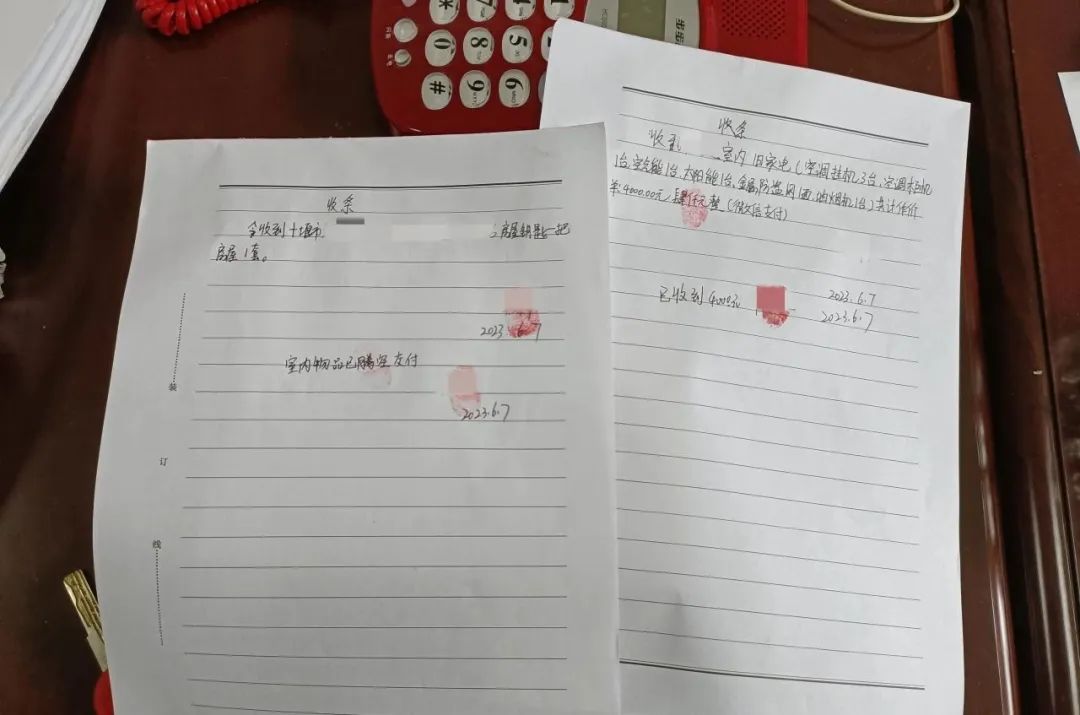 收条
今收到十堰市
房屋钥匙一把
房屋1套。
2023.6.7
室内物品已腾空交付
2023.6.7
装
订
线
收条
收到
室内旧家电(空调挂机3台,空调柜机
1台,空气能1台,太阳能1台,金属防盗网1面,油烟机1台)共计作价
4000.00元,肆仟元整(微信支付)
2023.6.7
已收到4000元
2023.6.7
*
7
4
1
0
8
5
#
9
6